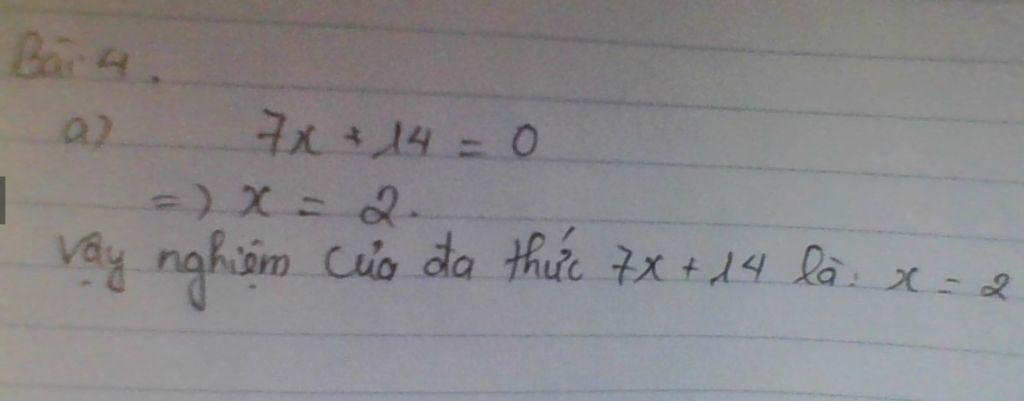 Bài 4.
a) 7x + 14 = 0
=) x = 2.
Vậy nghiệm của đa thức 7x + 14 là: x = 2